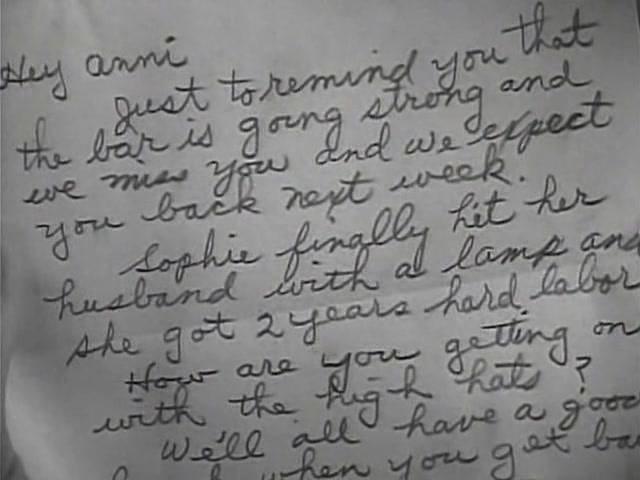 Hey anni
Just to remind you that
the bar is going strong and
we miss you and we expect
you back next week.
Sophie finally hit her
husband with a lamp and
she got 2 years hard labor
How are you getting on
with the high hats?
We'll all have a good
when you get ba